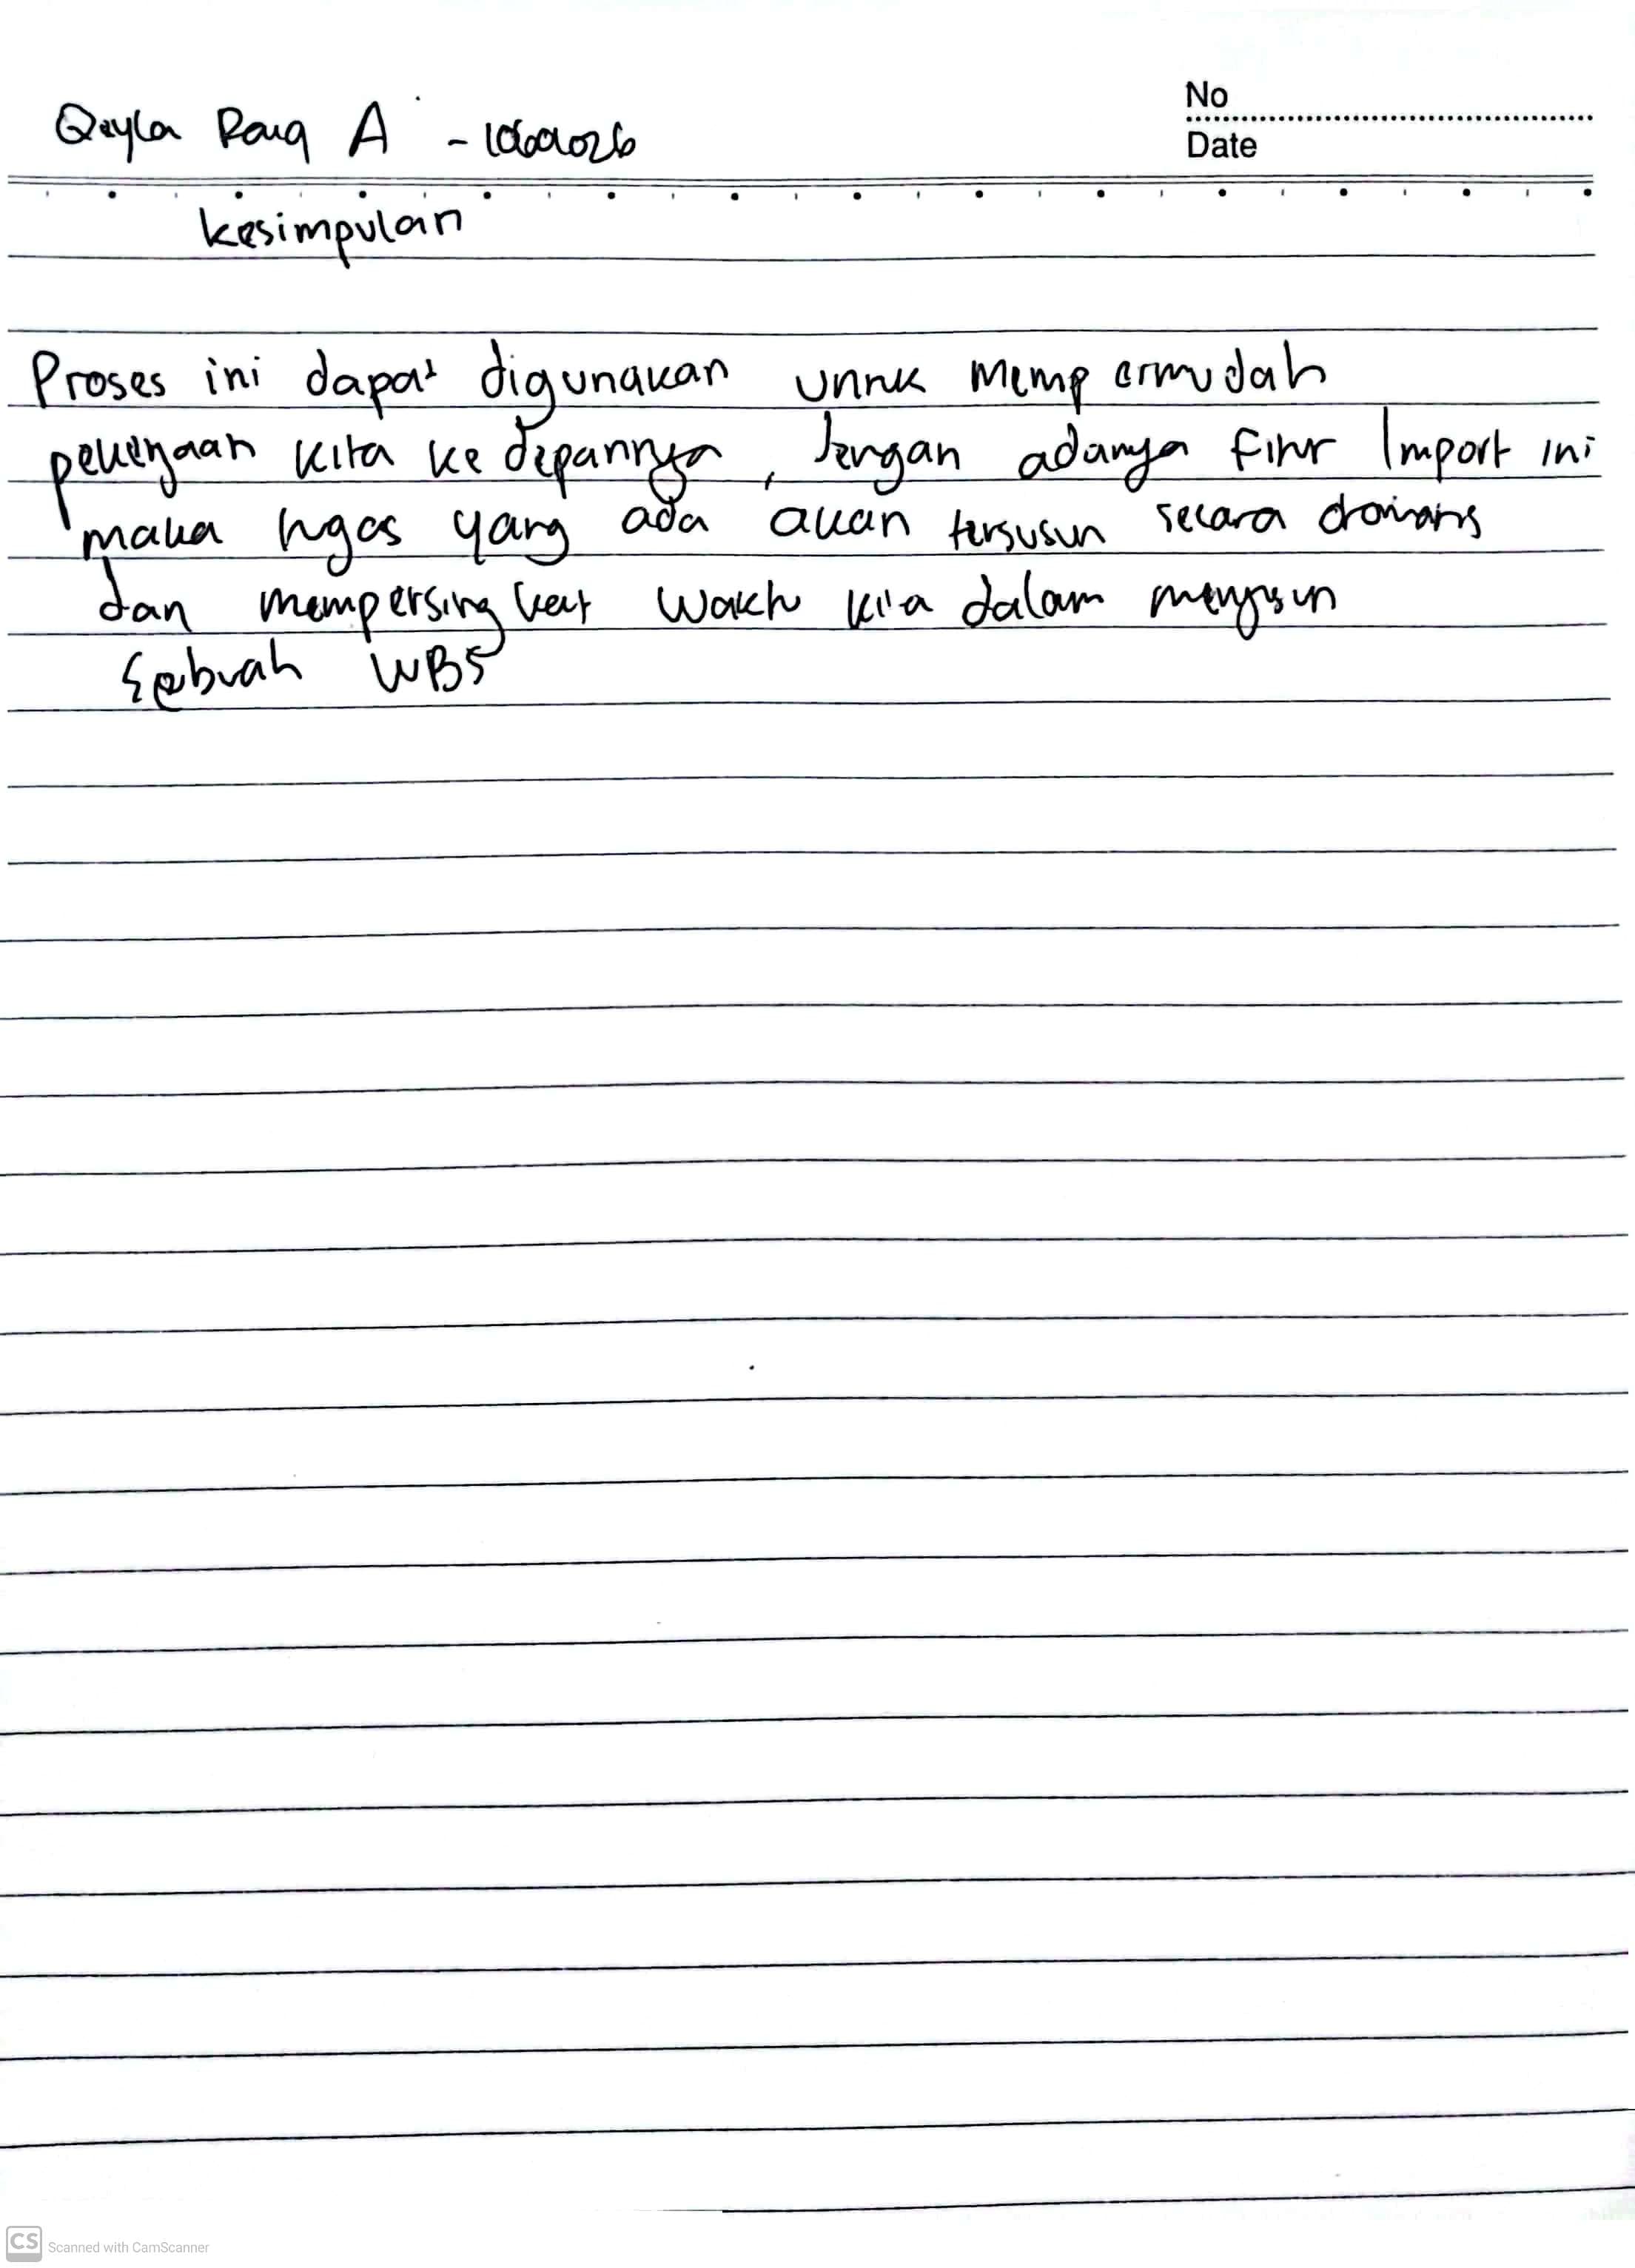 No
Qayla Raiq A -
Date
kesimpulan
Proses ini dapat digunakan untuk mempermudah
pekerjaan kita ke depannya, dengan adanya fitur Import ini
maka tugas yang ada akan tersusun secara otomatis
dan mempersingkat waktu kita dalam menyusun
sebuah WBS
CS Scanned with CamScanner